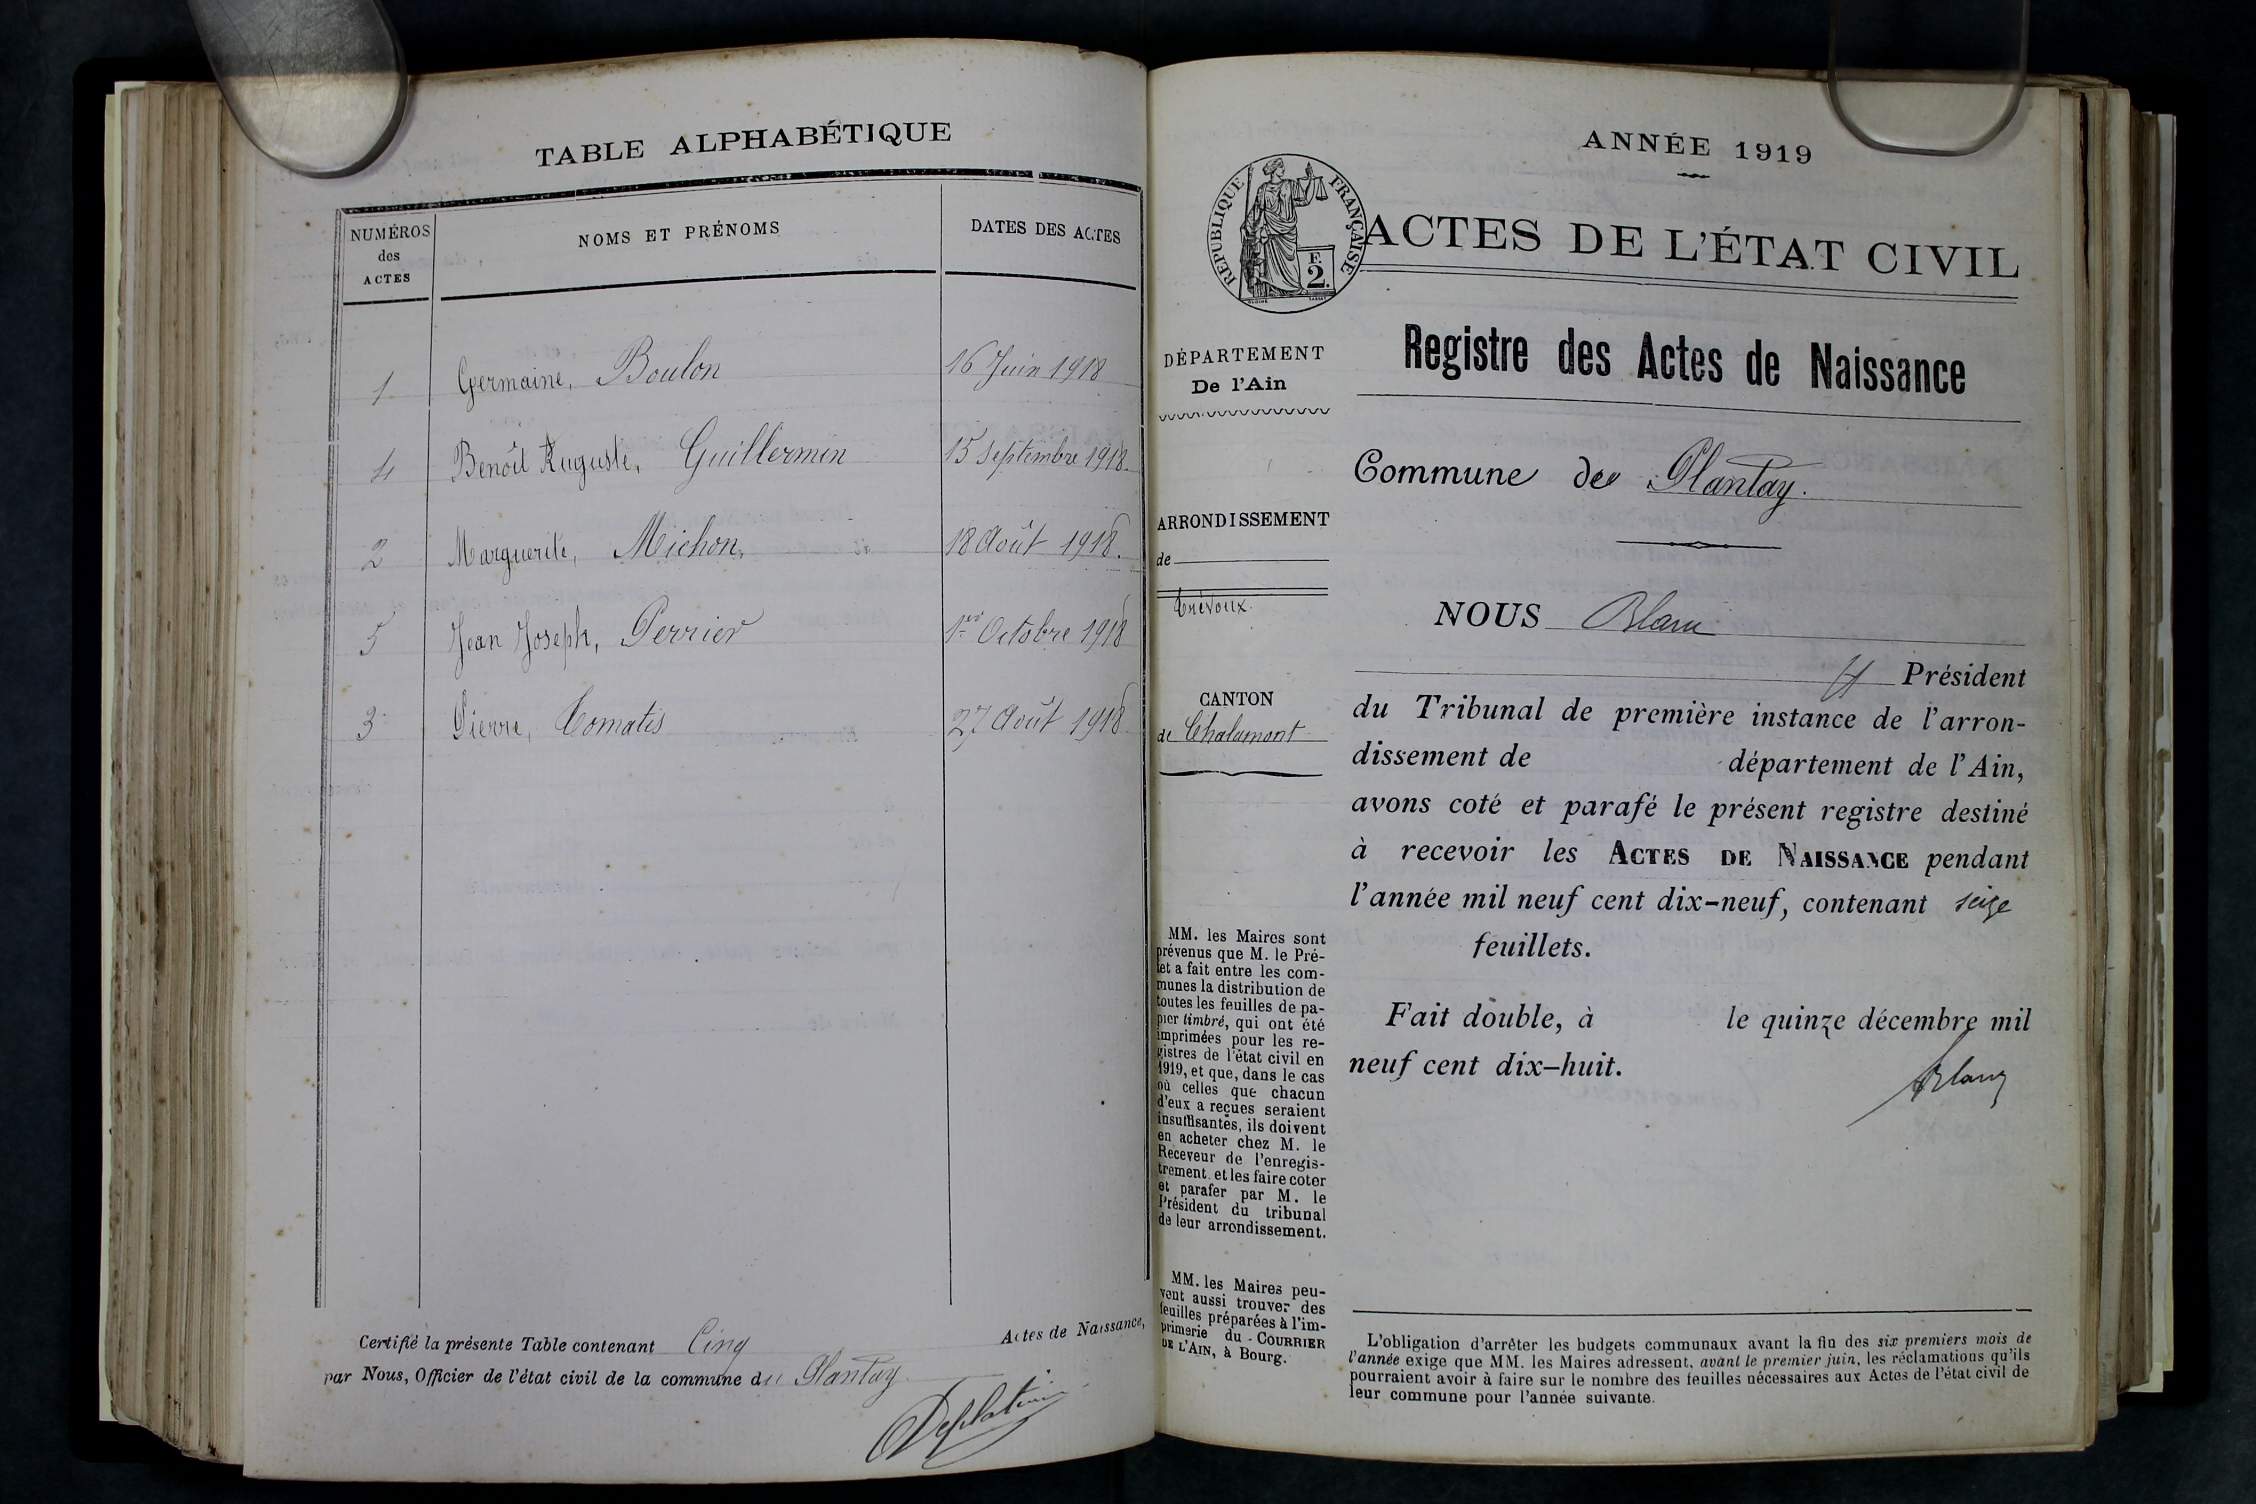 TABLE ALPHABÉTIQUE
NUMÉROS
des
ACTES
NOMS ET PRÉNOMS
DATES DES ACTES
1 Germaine, Boulon 16 Juin 1918
4 Benoît Auguste, Guillermin 15 Septembre 1918.
2 Marguerite, Michon, 18 Août 1918.
5 Jean Joseph, Perrier 1er Octobre 1918
3 Pierre, Comatis 27 Août 1918
Certifié la présente Table contenant Cinq Actes de Naissance,
par Nous, Officier de l'état civil de la commune du Plantay
ANNÉE 1919
RÉPUBLIQUE FRANÇAISE
F.
2.
ACTES DE L'ÉTAT CIVIL
DÉPARTEMENT
De l'Ain
ARRONDISSEMENT
de
Trévoux.
CANTON
de Chalamont
MM. les Maires sont
prévenus que M. le Pré-
fet a fait entre les com-
munes la distribution de
toutes les feuilles de pa-
pier timbré, qui ont été
imprimées pour les re-
gistres de l'état civil en
1919, et que, dans le cas
où celles que chacun
d'eux a reçues seraient
insuffisantes, ils doivent
en acheter chez M. le
Receveur de l'enregis-
trement et les faire coter
et parafer par M. le
Président du tribunal
de leur arrondissement.
MM. les Maires peu-
vent aussi trouver des
feuilles préparées à l'im-
primerie du COURRIER
DE L'AIN, à Bourg.
Registre des Actes de Naissance
Commune de Plantay.
NOUS Blanc
Président
du Tribunal de première instance de l'arron-
dissement de département de l'Ain,
avons coté et parafé le présent registre destiné
à recevoir les ACTES DE NAISSANCE pendant
l'année mil neuf cent dix-neuf, contenant seize
feuillets.
Fait double, à le quinze décembre mil
neuf cent dix-huit.
Blanc
L'obligation d'arrêter les budgets communaux avant la fin des six premiers mois de
l'année exige que MM. les Maires adressent, avant le premier juin, les réclamations qu'ils
pourraient avoir à faire sur le nombre des feuilles nécessaires aux Actes de l'état civil de
leur commune pour l'année suivante.